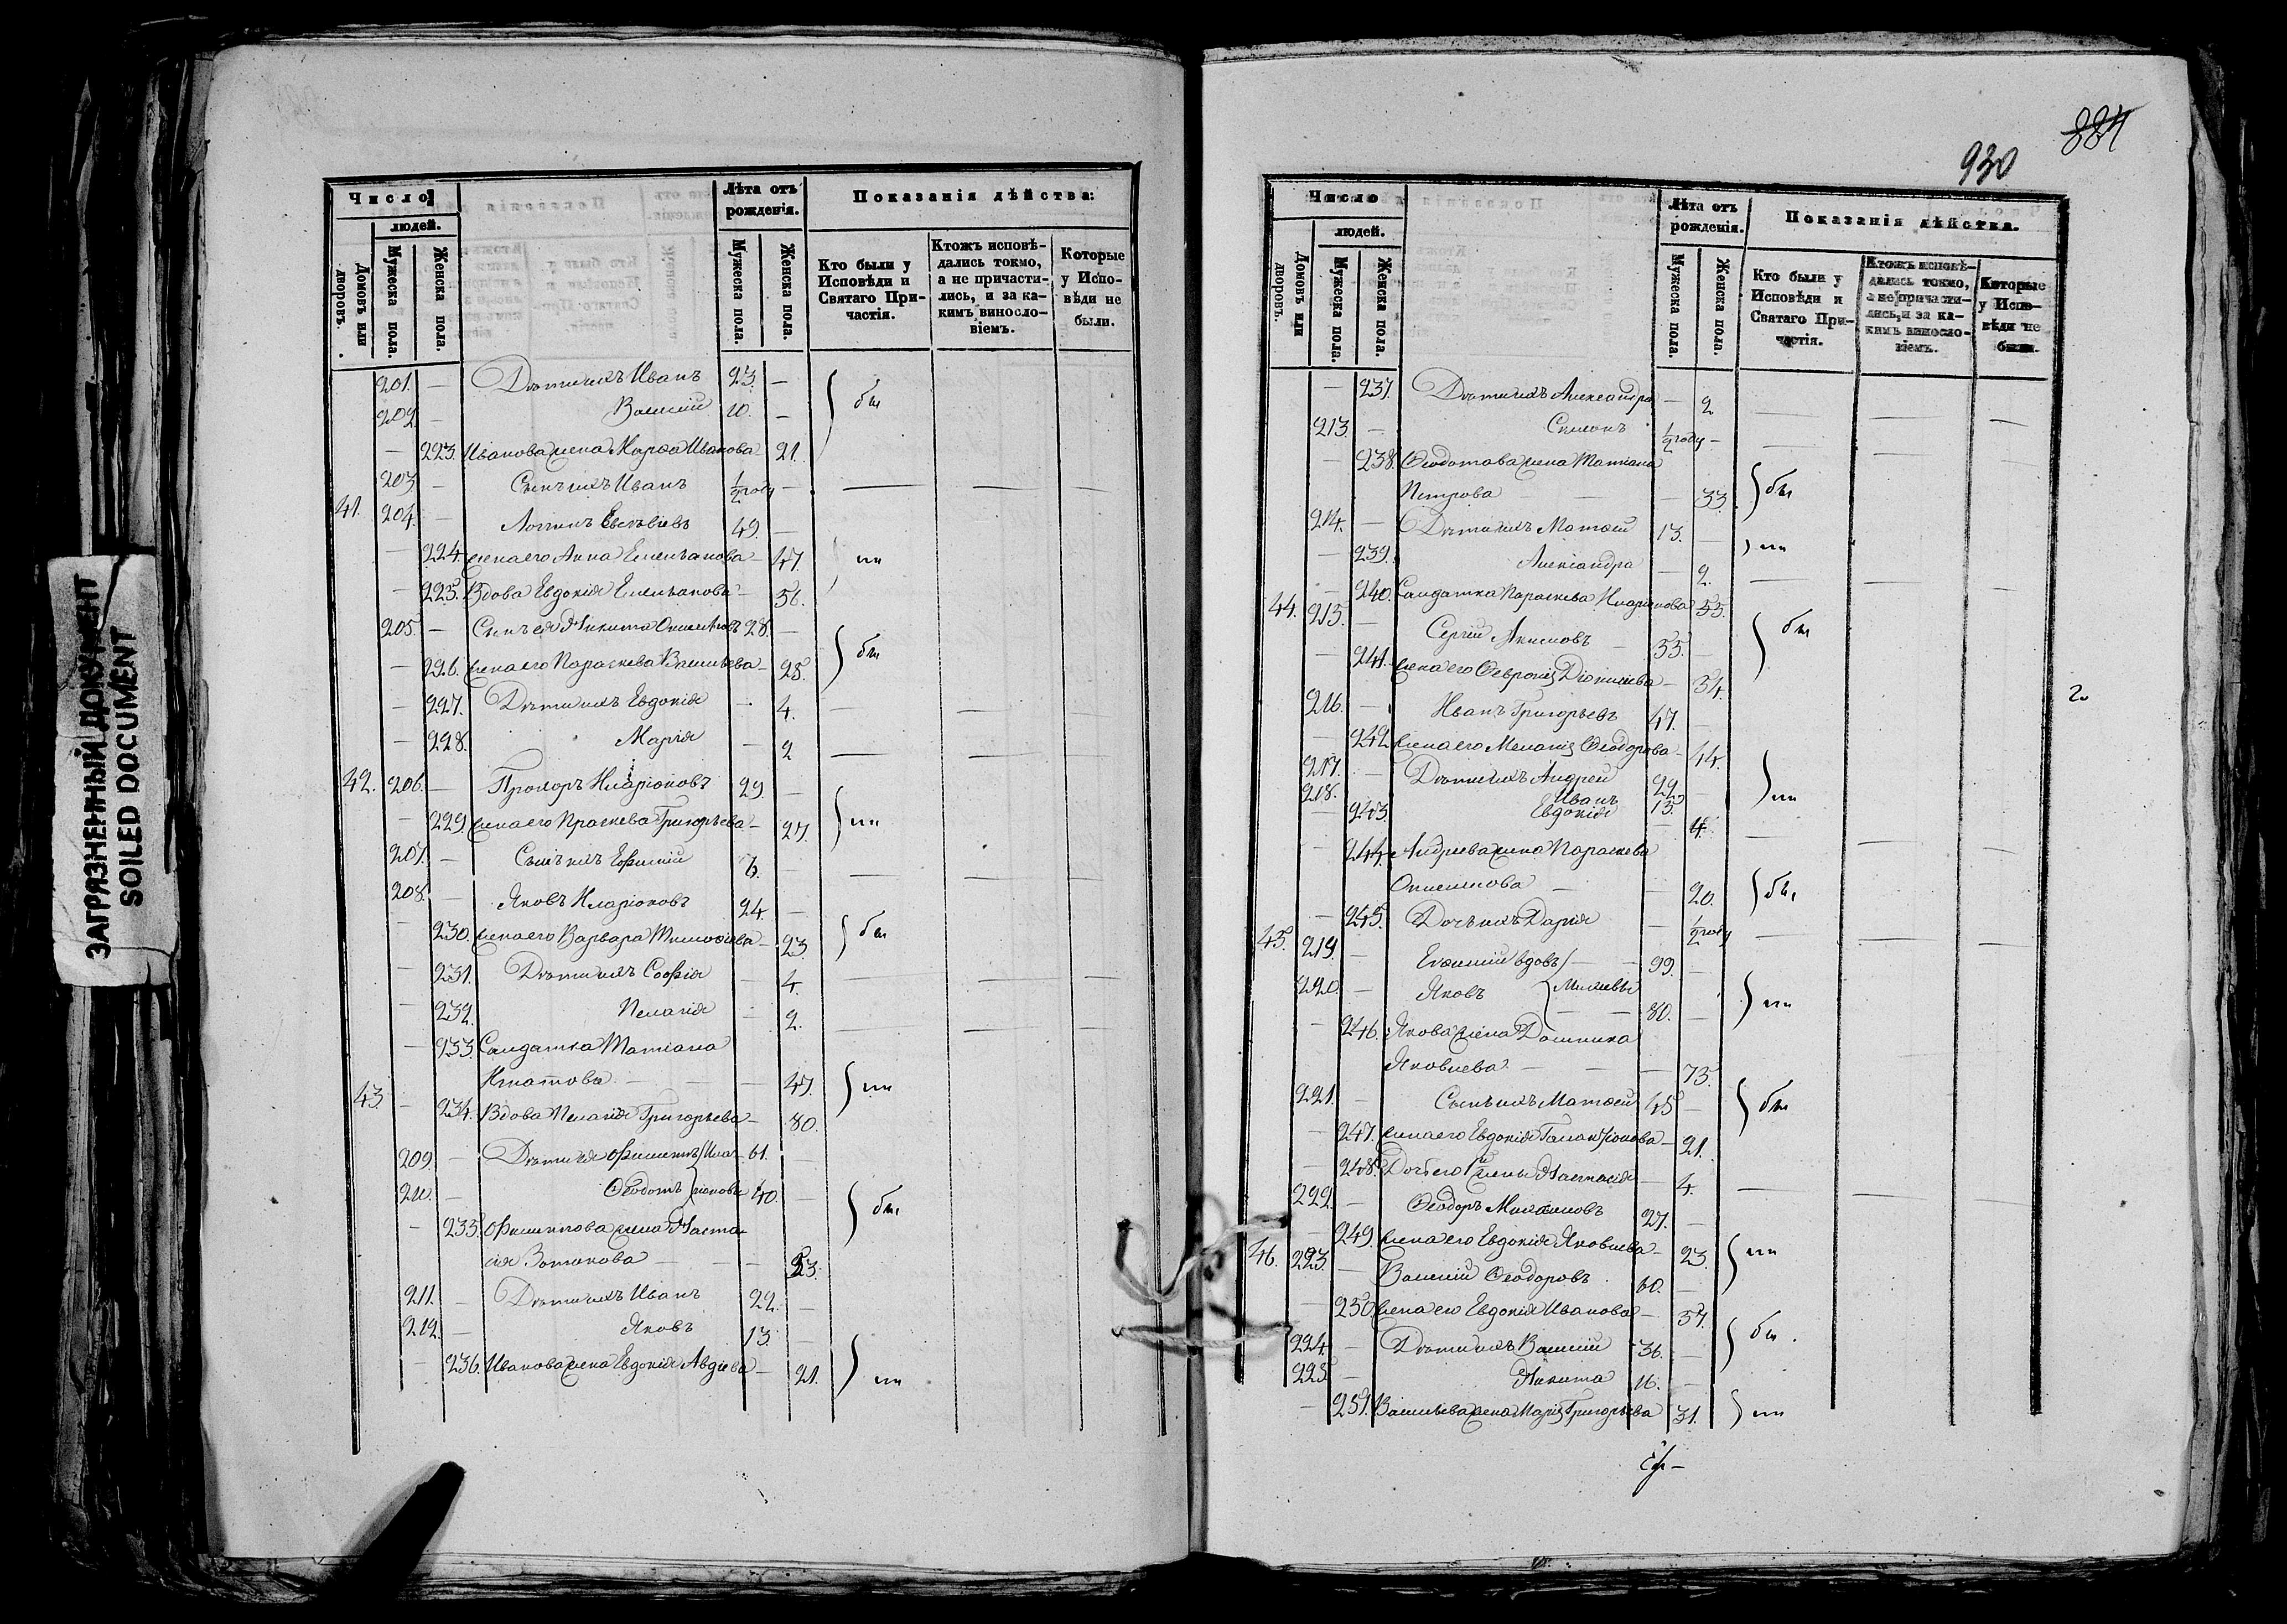 ЗАГРЯЗНЕННЫЙ ДОКУМЕНТ
SOILED DOCUMENT
Число
людей.
Домовъ или дворовъ.
Мужеска пола.
Женска пола.
Лѣта отъ рожденія.
Мужеска пола.
Женска пола.
Показанія дѣйства:
Кто были у Исповѣди и Святаго Причастія.
Ктожъ исповѣдались токмо, а не причастились, и за какимъ винословіемъ.
Которые у Исповѣди не были.
201. — Дѣти ихъ Иванъ 23. — бы
202. — Василій 10. —
— 223. Иванова жена Марѳа Иванова 21.
203. — Сынъ ихъ Иванъ ½ году — — — —
41. 204. — Логинъ 49. —
— 224. жена его Анна Емельянова — 47.
— 225. Вдова Евдокія Емельянова — 56.
205. — Сынъ ея Никита 28. —
— 226. жена его Параскева Васильева — 28. бы
— 227. Дѣти ихъ Евдокія — 4. — — —
— 228. Марія — 2 — — —
42. 206. — Прохоръ Иларіоновъ 29. —
— 229. жена его Праскева Григорьева — 27.
207. — Сынъ ихъ Ефимій 6. — — — —
208. — Яковъ Иларіоновъ 24. —
— 230. жена его Варвара Тимоѳеева — 23. бы
— 231. Дѣти ихъ Софія — 4.
— 232. Пелагія — 2. — — —
— 233. Салдатка Татіана
Игнатова — — — 47.
43. — 234. Вдова Пелагія Григорьева — 80.
209. — Дѣти ея Филиппъ Ила- 61. —
210. — Ѳеодотъ ріоновы 40. — бы
— 235. Филиппова жена Наста-
сія — — 53.
211. — Дѣти ихъ Иванъ 22. —
212. — Яковъ 13. —
— 236. Иванова жена Евдокія Авдіева — 21.
884
930
Число
людей.
Домовъ или дворовъ.
Мужеска пола.
Женска пола.
Лѣта отъ рожденія.
Мужеска пола.
Женска пола.
Показанія дѣйства.
Кто были у Исповѣди и Святаго Причастія.
Ктожъ исповѣдались токмо, а не причастились, и за какимъ винословіемъ.
Которые у Исповѣди не были.
— 237. Дѣти ихъ Александра — 2 — — —
213. — Симеонъ ½ году — — — —
— 238. Ѳеодотова жена Татіана
Петрова — — 33. бы
214. — Дѣти ихъ Матѳей 13. —
— 239. Александра — 2. — — —
— 240. Салдатка Параскева Иларіонова 55.
44. 215. — Сергій Акимовъ — 55. — бы
— 241. жена его Ѳевронія Діонисіева — 54.
216. — Иванъ Григорьевъ 47. —
— 242. жена его Меланія Ѳеодорова — 44.
217. — Дѣти ихъ Андрей 22. —
218. Иванъ 13.
— 243. Евдокія — 4. — — —
— 244. Андреева жена Параскева
— — 20. бы
— 245. Дочь ихъ Дарія — ½ году — — —
45. 219. — Евѳимій вдовъ — — 99. —
220. — Яковъ — — 80. —
— 246. Якова жена Домника
Яковлева — — — 73.
221. — Сынъ ихъ Матѳей 45. — бы
— 247. жена его Евдокія Галактіонова — 21.
— 248. Дочь его 1й жены Настасія — 4. — — —
222. — Ѳеодоръ 27. —
— 249. жена его Евдокія Яковлева — 23.
46. 223. — Василій Ѳеодоровъ 60. —
— 250. жена его Евдокія Иванова — 57.
224. — Дѣти ихъ Василій 36. — бы
225. — Никита 16. —
— 251. Васильева жена Марія Григорьева 31.